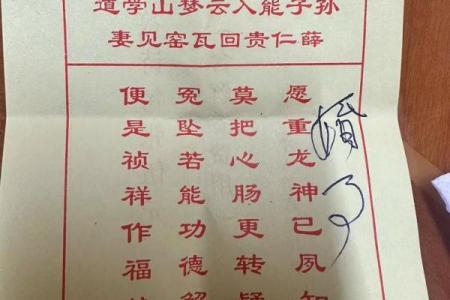 孙子能入云梦山学道
薛仁贵回瓦窑见妻
愿重龙神已夙知
莫把心肠更转疑
冤坠若能功德解
便是祯祥作福
婚